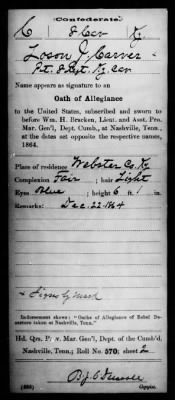 Confederate.
C 8 Cav Ky
Loson J. Carver
Pt. 8 Regt. Ky. Cav
Name appears as signature to an
Oath of Allegiance
to the United States, subscribed and sworn to
before Wm. H. Bracken, Lieut. and Asst. Pro.
Mar. Gen'l, Dept. Cumb., at Nashville, Tenn.,
at the dates set opposite the respective names,
1864.
Place of residence Webster Co. Ky
Complexion Fair ; hair Light
Eyes Blue ; height 6 ft. 1 in.
Remarks: Dec. 22-1864
Signs by mark
Indorsement shows: "Oaths of Allegiance of Rebel De-
serters taken at Nashville, Tenn."
Hd. Qrs. Prov. Mar. Gen'l, Dept. of the Cumb'd,
Nashville, Tenn.; Roll No. 570; sheet 2
Copyist.